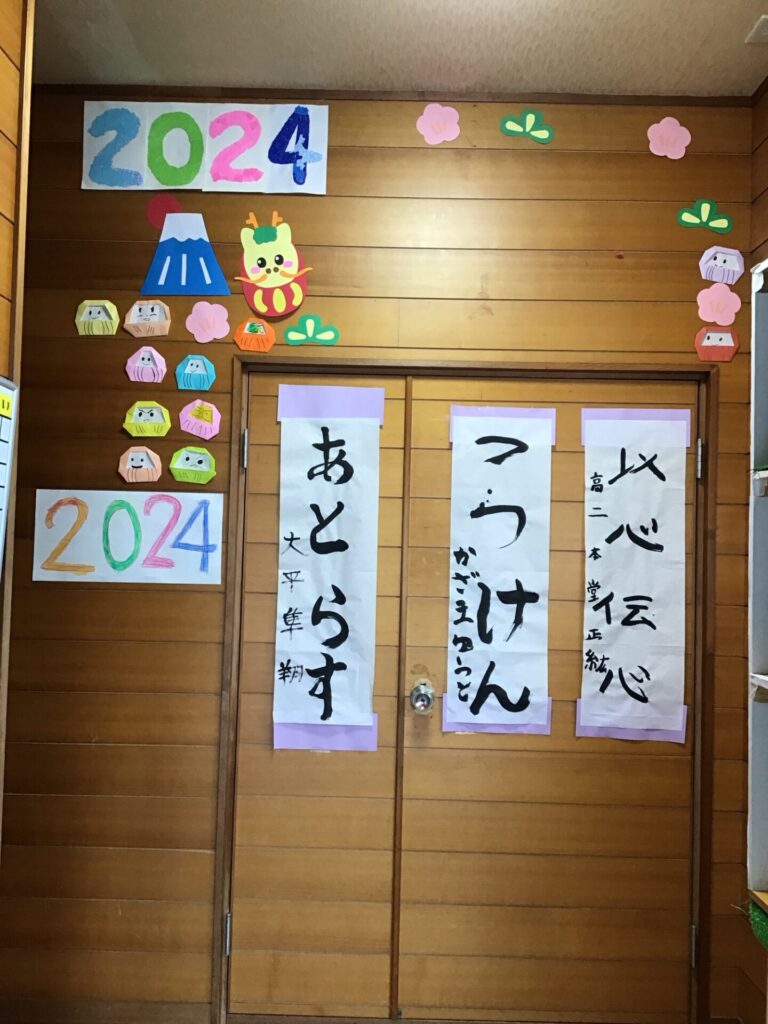 2024
2024
以心伝心
高二 本堂正紘
つらけん
かざまゆうと
あとらす
大平隼翔